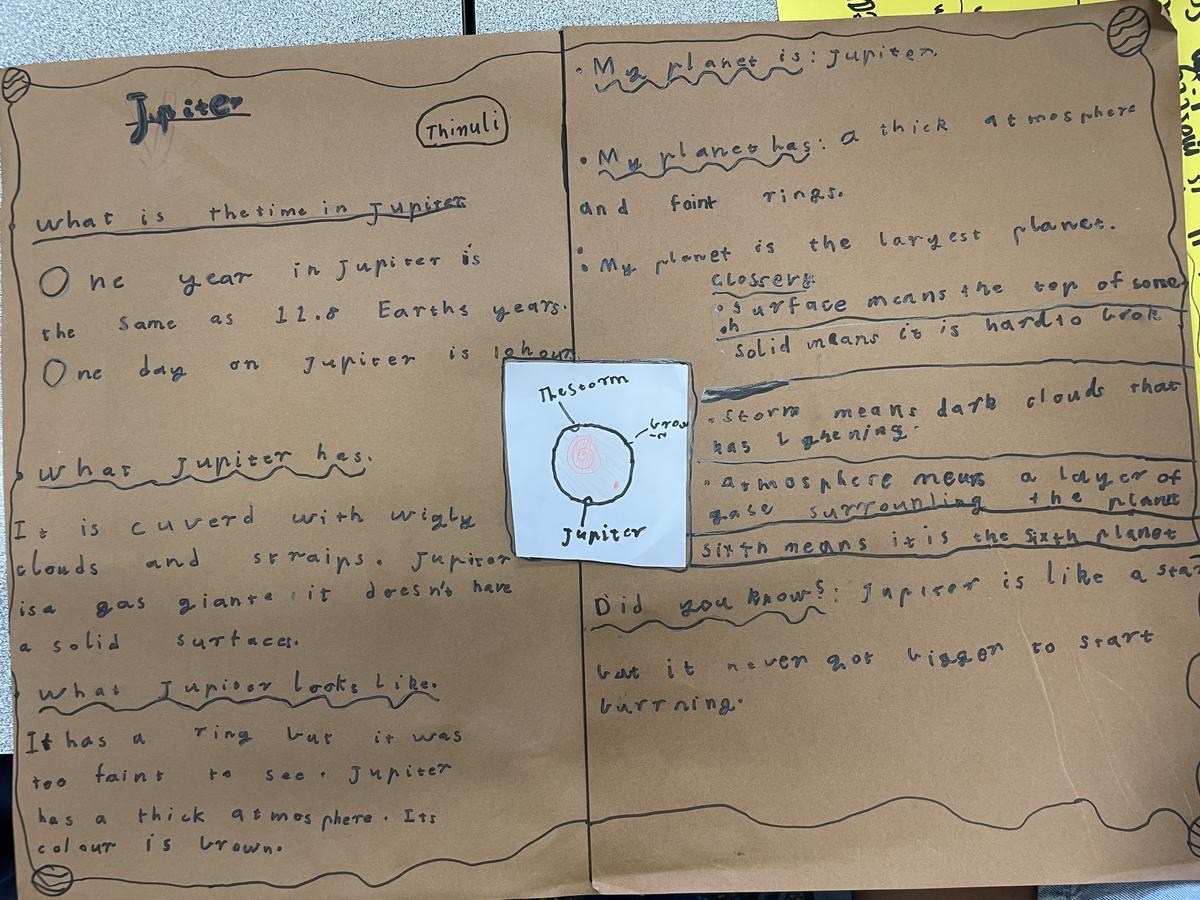 Jupiter
Thinuli
What is the time in Jupiter
One year in Jupiter is
the same as 11.8 Earths years.
One day on Jupiter is 10 hour
What Jupiter has.
It is cuverd with wigly
clouds and straips. Jupiter
is a gas giante it doesn't have
a solid surfaces.
What Jupiter looks Like.
It has a ring but it was
too faint to see. Jupiter
has a thick atmosphere. Its
colour is brown.
The storm
brow
n
Jupiter
• My planet is: Jupiter.
• My planet has: a thick atmosphere
and faint rings.
• My planet is the largest planet.
Glossery
• surface means the top of some
solid means it is hard to brok
• storm means dark clouds that
has
• atmosphere means a layer of
gase surrounling the planet
sixth means it is the sixth planet
Did you know?: Jupiter is like a star
but it never got bigger to start
burrning.